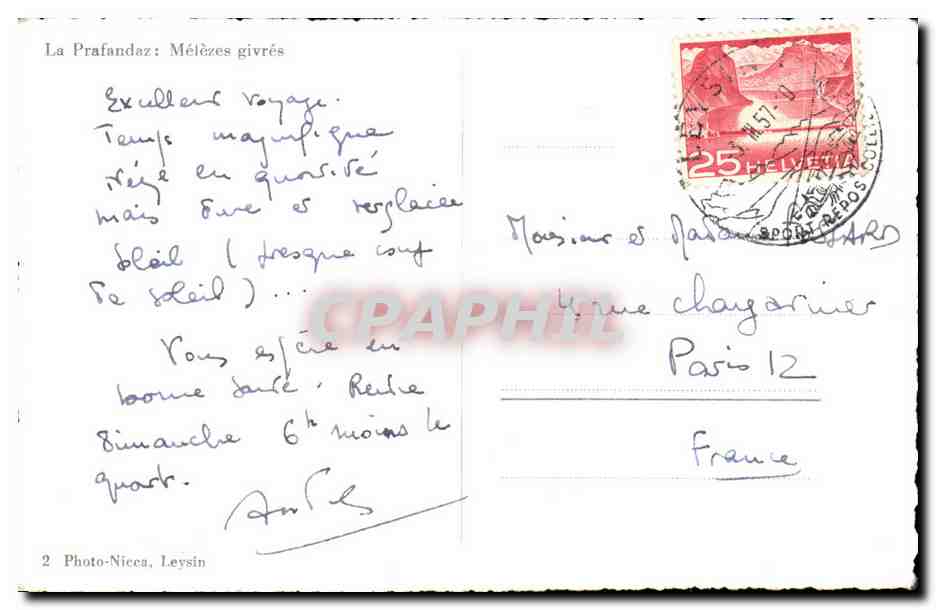 La Prafandaz : Mélèzes givrés
Excellent voyage.
Temps magnifique
Neige en quantité
mais dure et verglacée
Soleil (presque coup
de soleil) ...
Vous espère en
bonne santé. Rentre
dimanche 6h moins le
quart.
2 Photo-Nicca, Leysin
25 HELVETIA
LEYSIN
III.57
SPORT REPOS SOLEIL
Monsieur et Madame
4 rue Changarnier
Paris 12
France
CPAPHIL